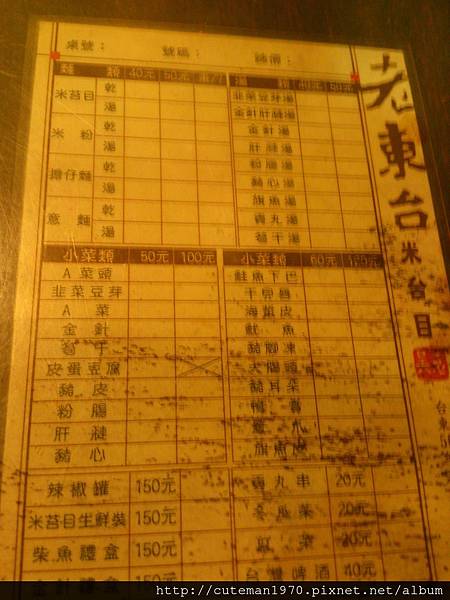 桌號： 號碼： 總價：
麵 類 40元 50元
米苔目 乾
湯
米 粉 乾
湯
擔仔麵 乾
湯
意 麵 乾
湯
湯 類 40元 50元
韭菜豆芽湯
金針肝連湯
金針湯
肝連湯
粉腸湯
豬心湯
旗魚湯
貢丸湯
筍干湯
小菜類 50元 100元
A 菜 頭
韭菜豆芽
A 菜
金 針
筍 干
皮蛋豆腐
豬 皮
粉 腸
肝 連
豬 心
小菜類
鮭魚下巴
海蜇皮
魷 魚
豬腳凍
大腸頭
豬耳朵
旗魚皮
辣椒罐 150元
米苔目生鮮裝 150元
柴魚禮盒 150元
150元
貢丸串 20元
冬瓜茶 20元
紅 茶 20元
台灣啤酒 40元
老東台米台目
http://cuteman1970.pixnet.net/album